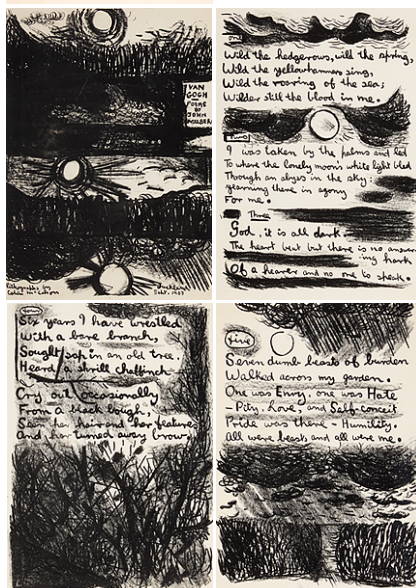 VAN
GOGH
POEMS
BY
JOHN
CASELBERG
Lithographs by
Colin McCahon
Auckland
Sept. 1957
one
Wild the hedgerows, wild the spring,
Wild the yellowhammers sing,
Wild the roaring of the sea;
Wilder still the blood in me.
Two
I was taken by the palms and led
To where the lonely moon's white light bled
Through an abyss in the sky:
yearning there in agony
For me.
Three
God, it is all dark
The heart beat but there is no answer-
ing hark
Of a hearer and no one to speak.
four
Six years I have wrestled
With a bare branch,
Sought sap in an old tree.
Heard a shrill chaffinch
Cry out occasionally
From a black bough;
Seen her hair and her features
And her turned away brow.
five
Seven dumb beasts of burden
Walked across my garden.
One was Envy, one was Hate
- Pity, Love, and Self-conceit
Pride was there - Humility.
All were beasts and all were me.